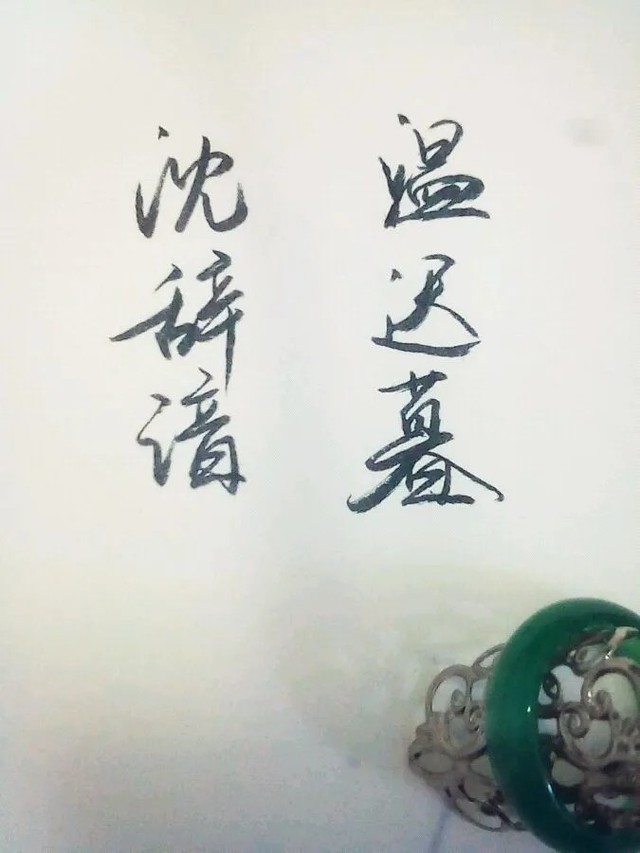 温迟暮
沈辞谙